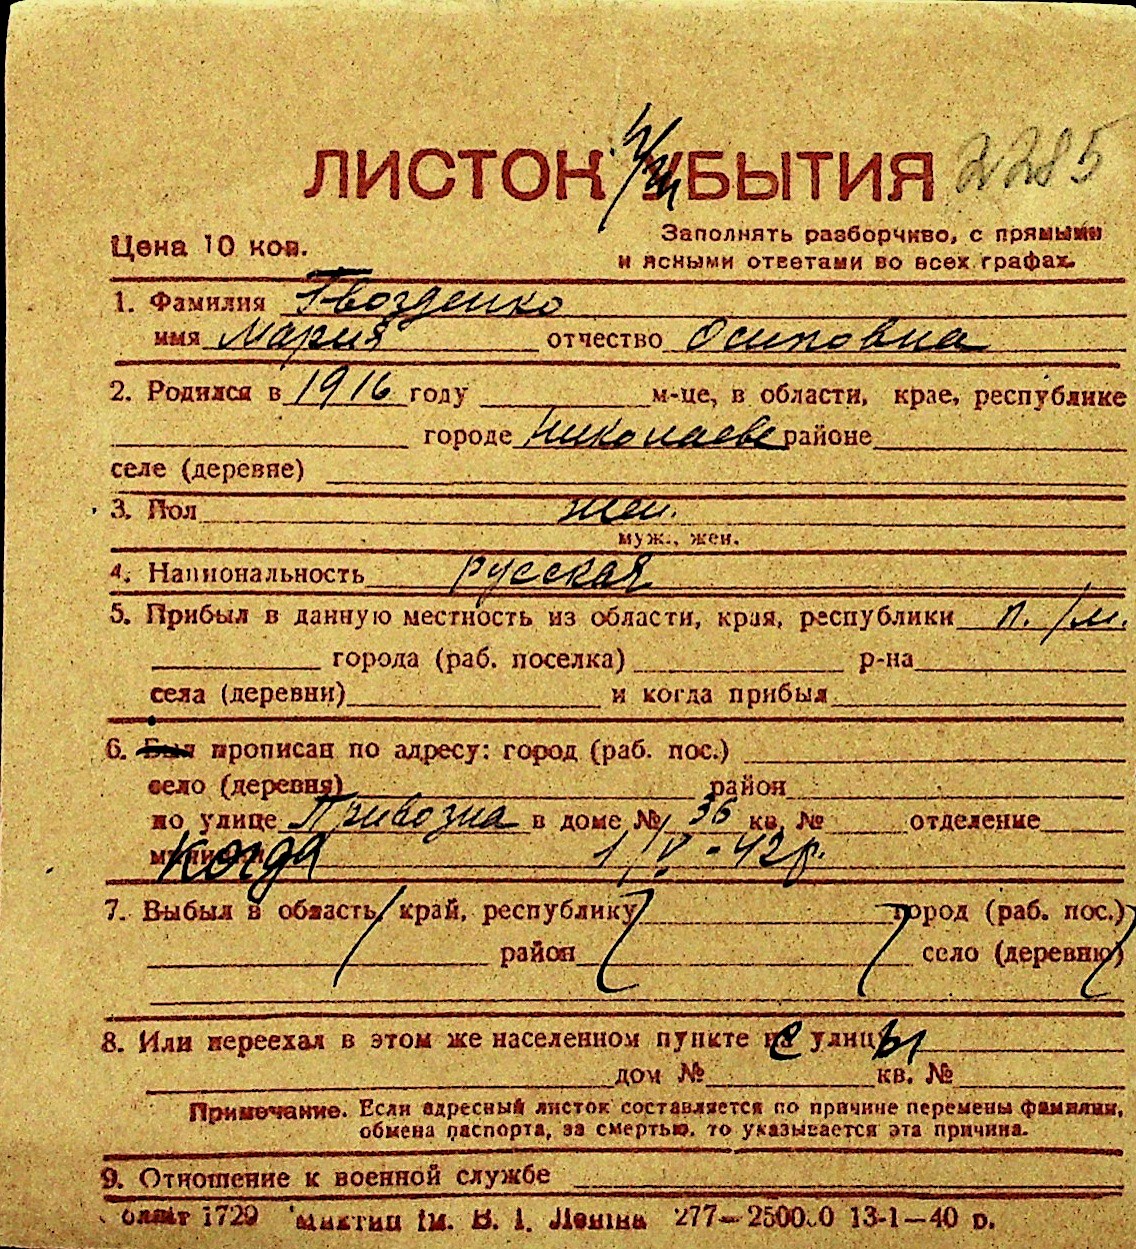 ЛИСТОК УБЫТИЯ 2285
Цена 10 коп.
Заполнять разборчиво, с прямыми
и ясными ответами во всех графах.
1. Фамилия Гвозденко
имя Мария отчество Осиповна
2. Родился в 1916 году м-це, в области, крае, республике
городе Николаеве районе
селе (деревне)
3. Пол жен.
муж., жен.
4. Национальность русская
5. Прибыл в данную местность из области, края, республики п./м.
города (раб. поселка) р-на
села (деревни) и когда прибыл
6. Был прописан по адресу: город (раб. пос.)
село (деревня) район
по улице Привозна в доме № 36 кв. № отделение
когда 1/V - 42 р.
7. Выбыл в область, край, республику город (раб. пос.)
район село (деревню)
8. Или переехал в этом же населенном пункте с улицы
дом № кв. №
Примечание. Если адресный листок составляется по причине перемены фамилии,
обмена паспорта, за смертью, то указывается эта причина.
9. Отношение к военной службе
1729 ім. В. І. Леніна 277—2500.0 13-1—40 р.